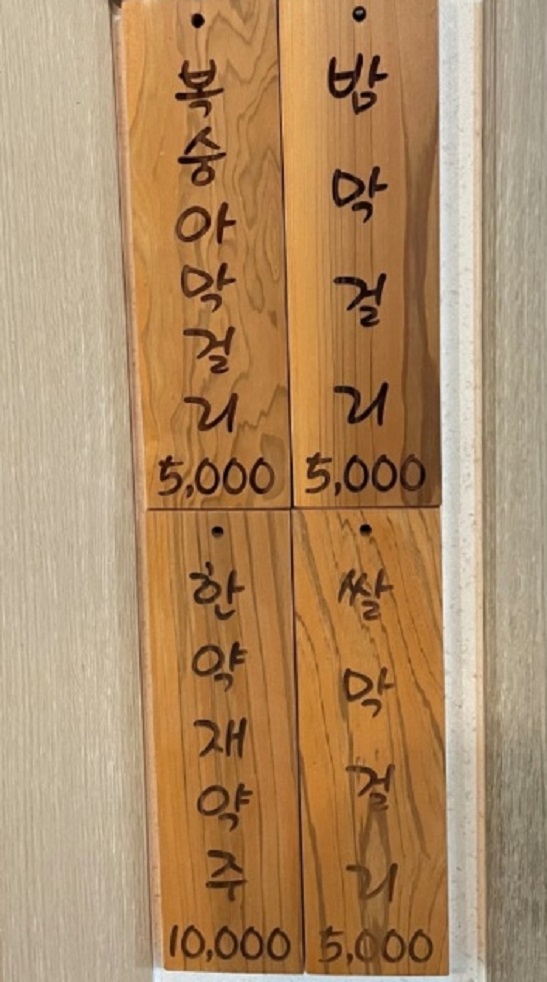 복숭아막걸리
5,000
밤막걸리
5,000
한약재약주
10,000
쌀막걸리
5,000